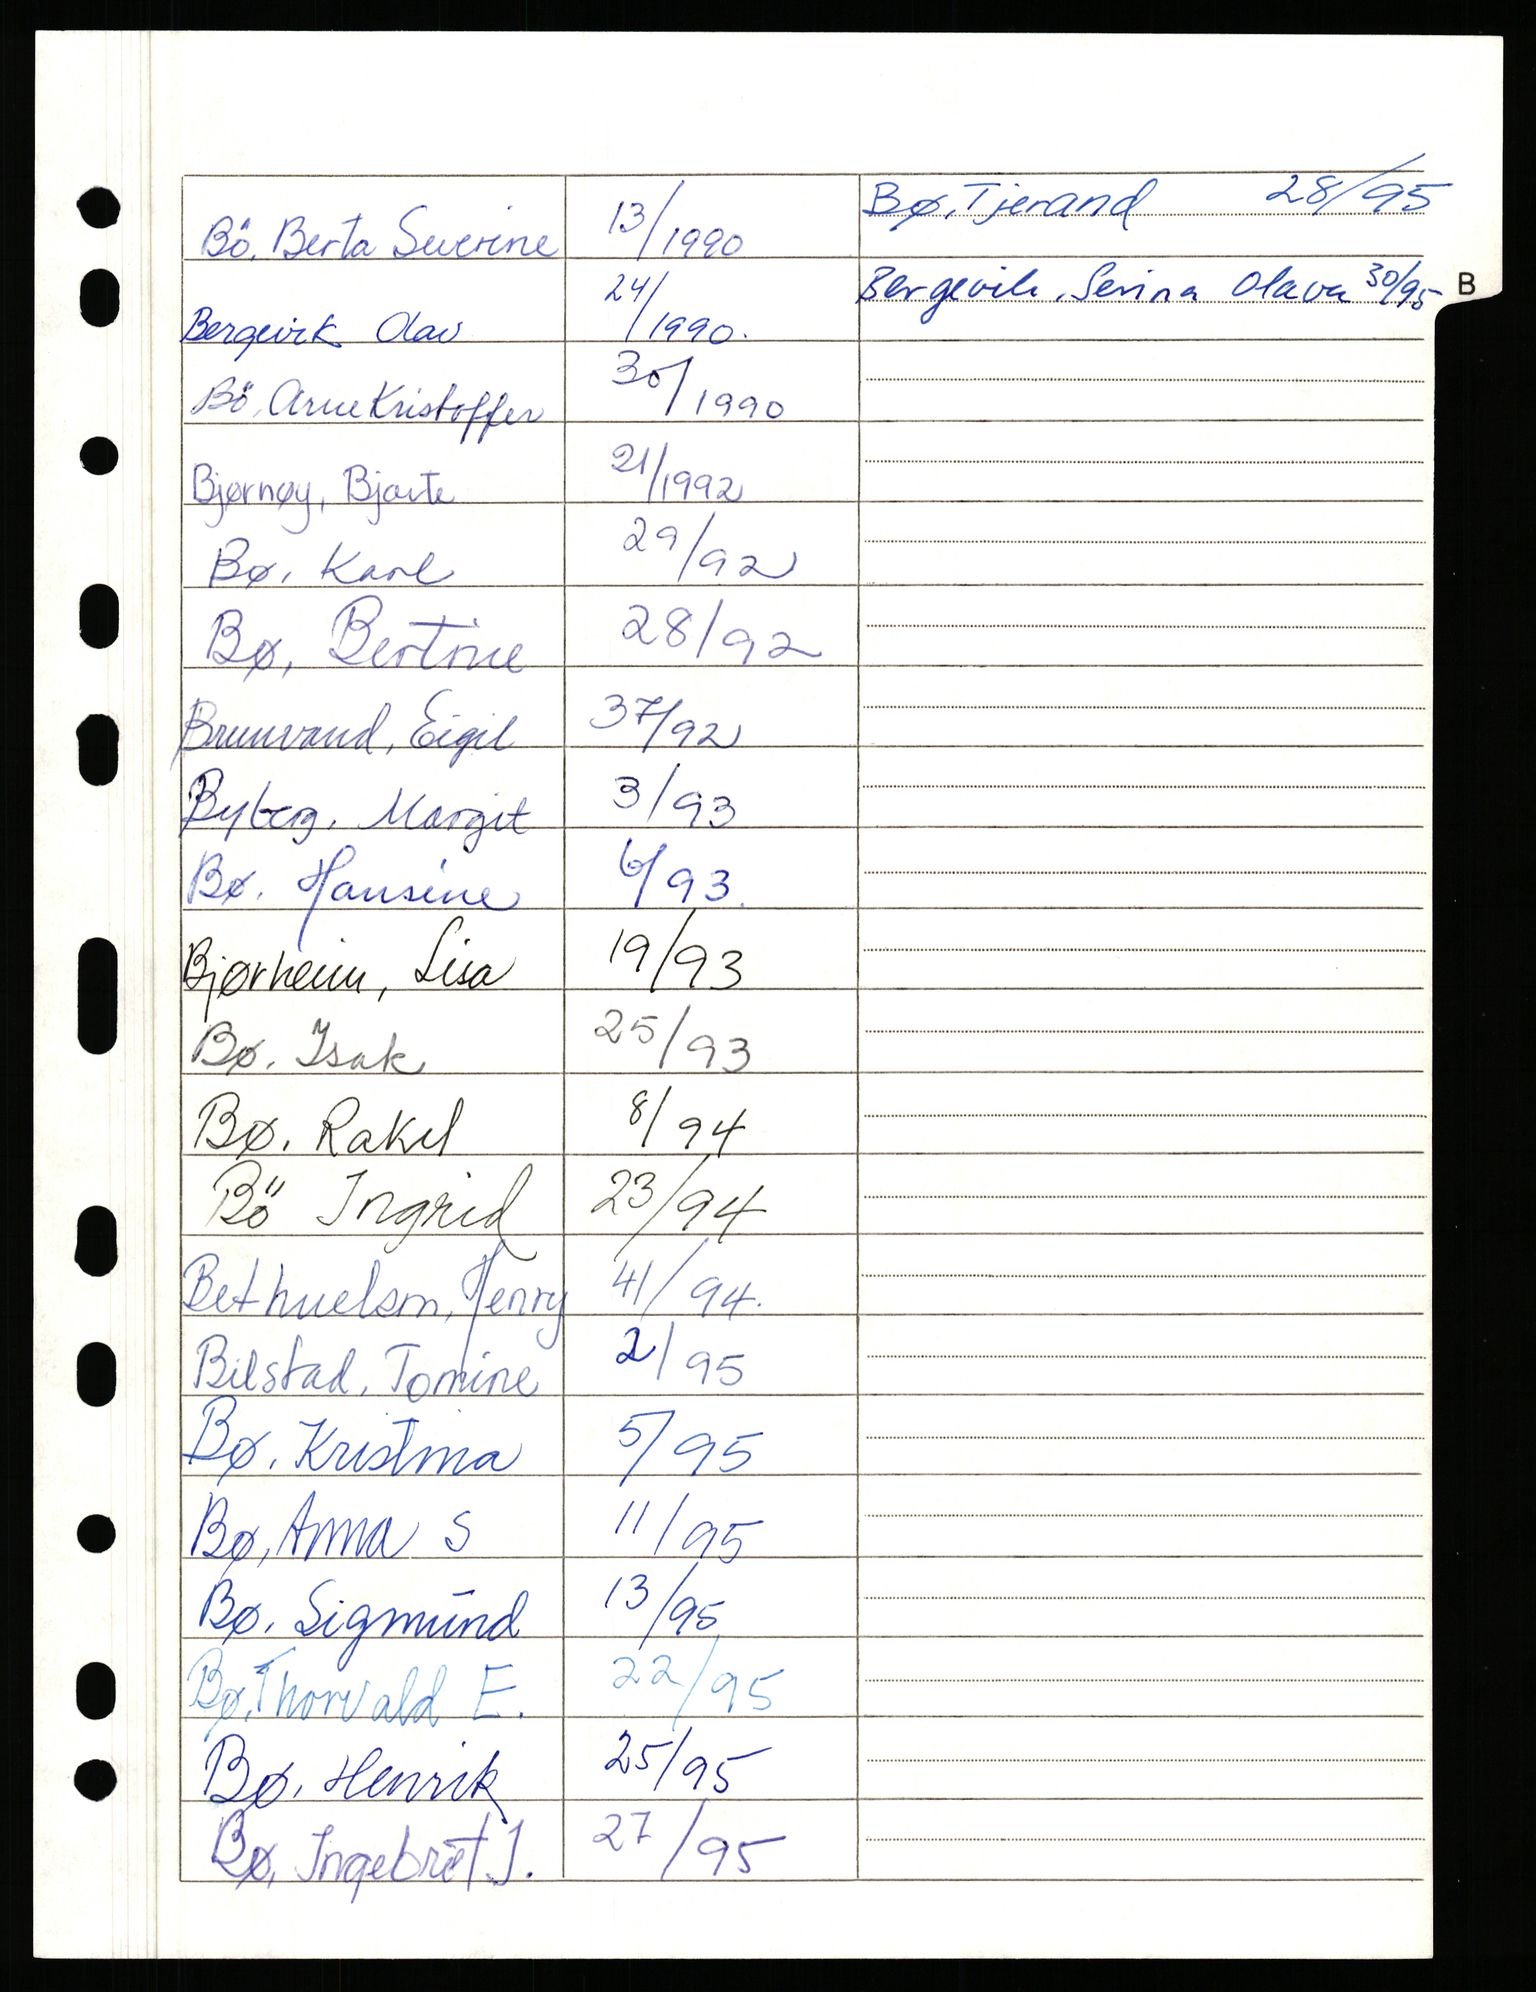 Bö, Berta Severine 13/1990 Bø, Tjerand 28/95
Bergevik Olav 24/1990. Bergevik, Serina Olava 30/95 B
Bö, Arne Kristoffer 30/1990
Bjørnøy, Bjarte 21/1992
Bø, Karl 29/92
Bø, Bertine 28/92
Brunvand, Eigil 37/92
Byberg, Margit 3/93
Bø, Hansine 6/93.
Bjørheim, Lisa 19/93
Bø, Isak 25/93
Bø, Rakel 8/94
Bö Ingrid 23/94
Bethuelsen, Henry 41/94.
Bilstad, Tomine 2/95
Bø, Kristina 5/95
Bø, Anna S 11/95
Bø, Sigmund 13/95
Bø, Thorvald E. 22/95
Bø, Henrik 25/95
Bø, Ingebret J. 27/95